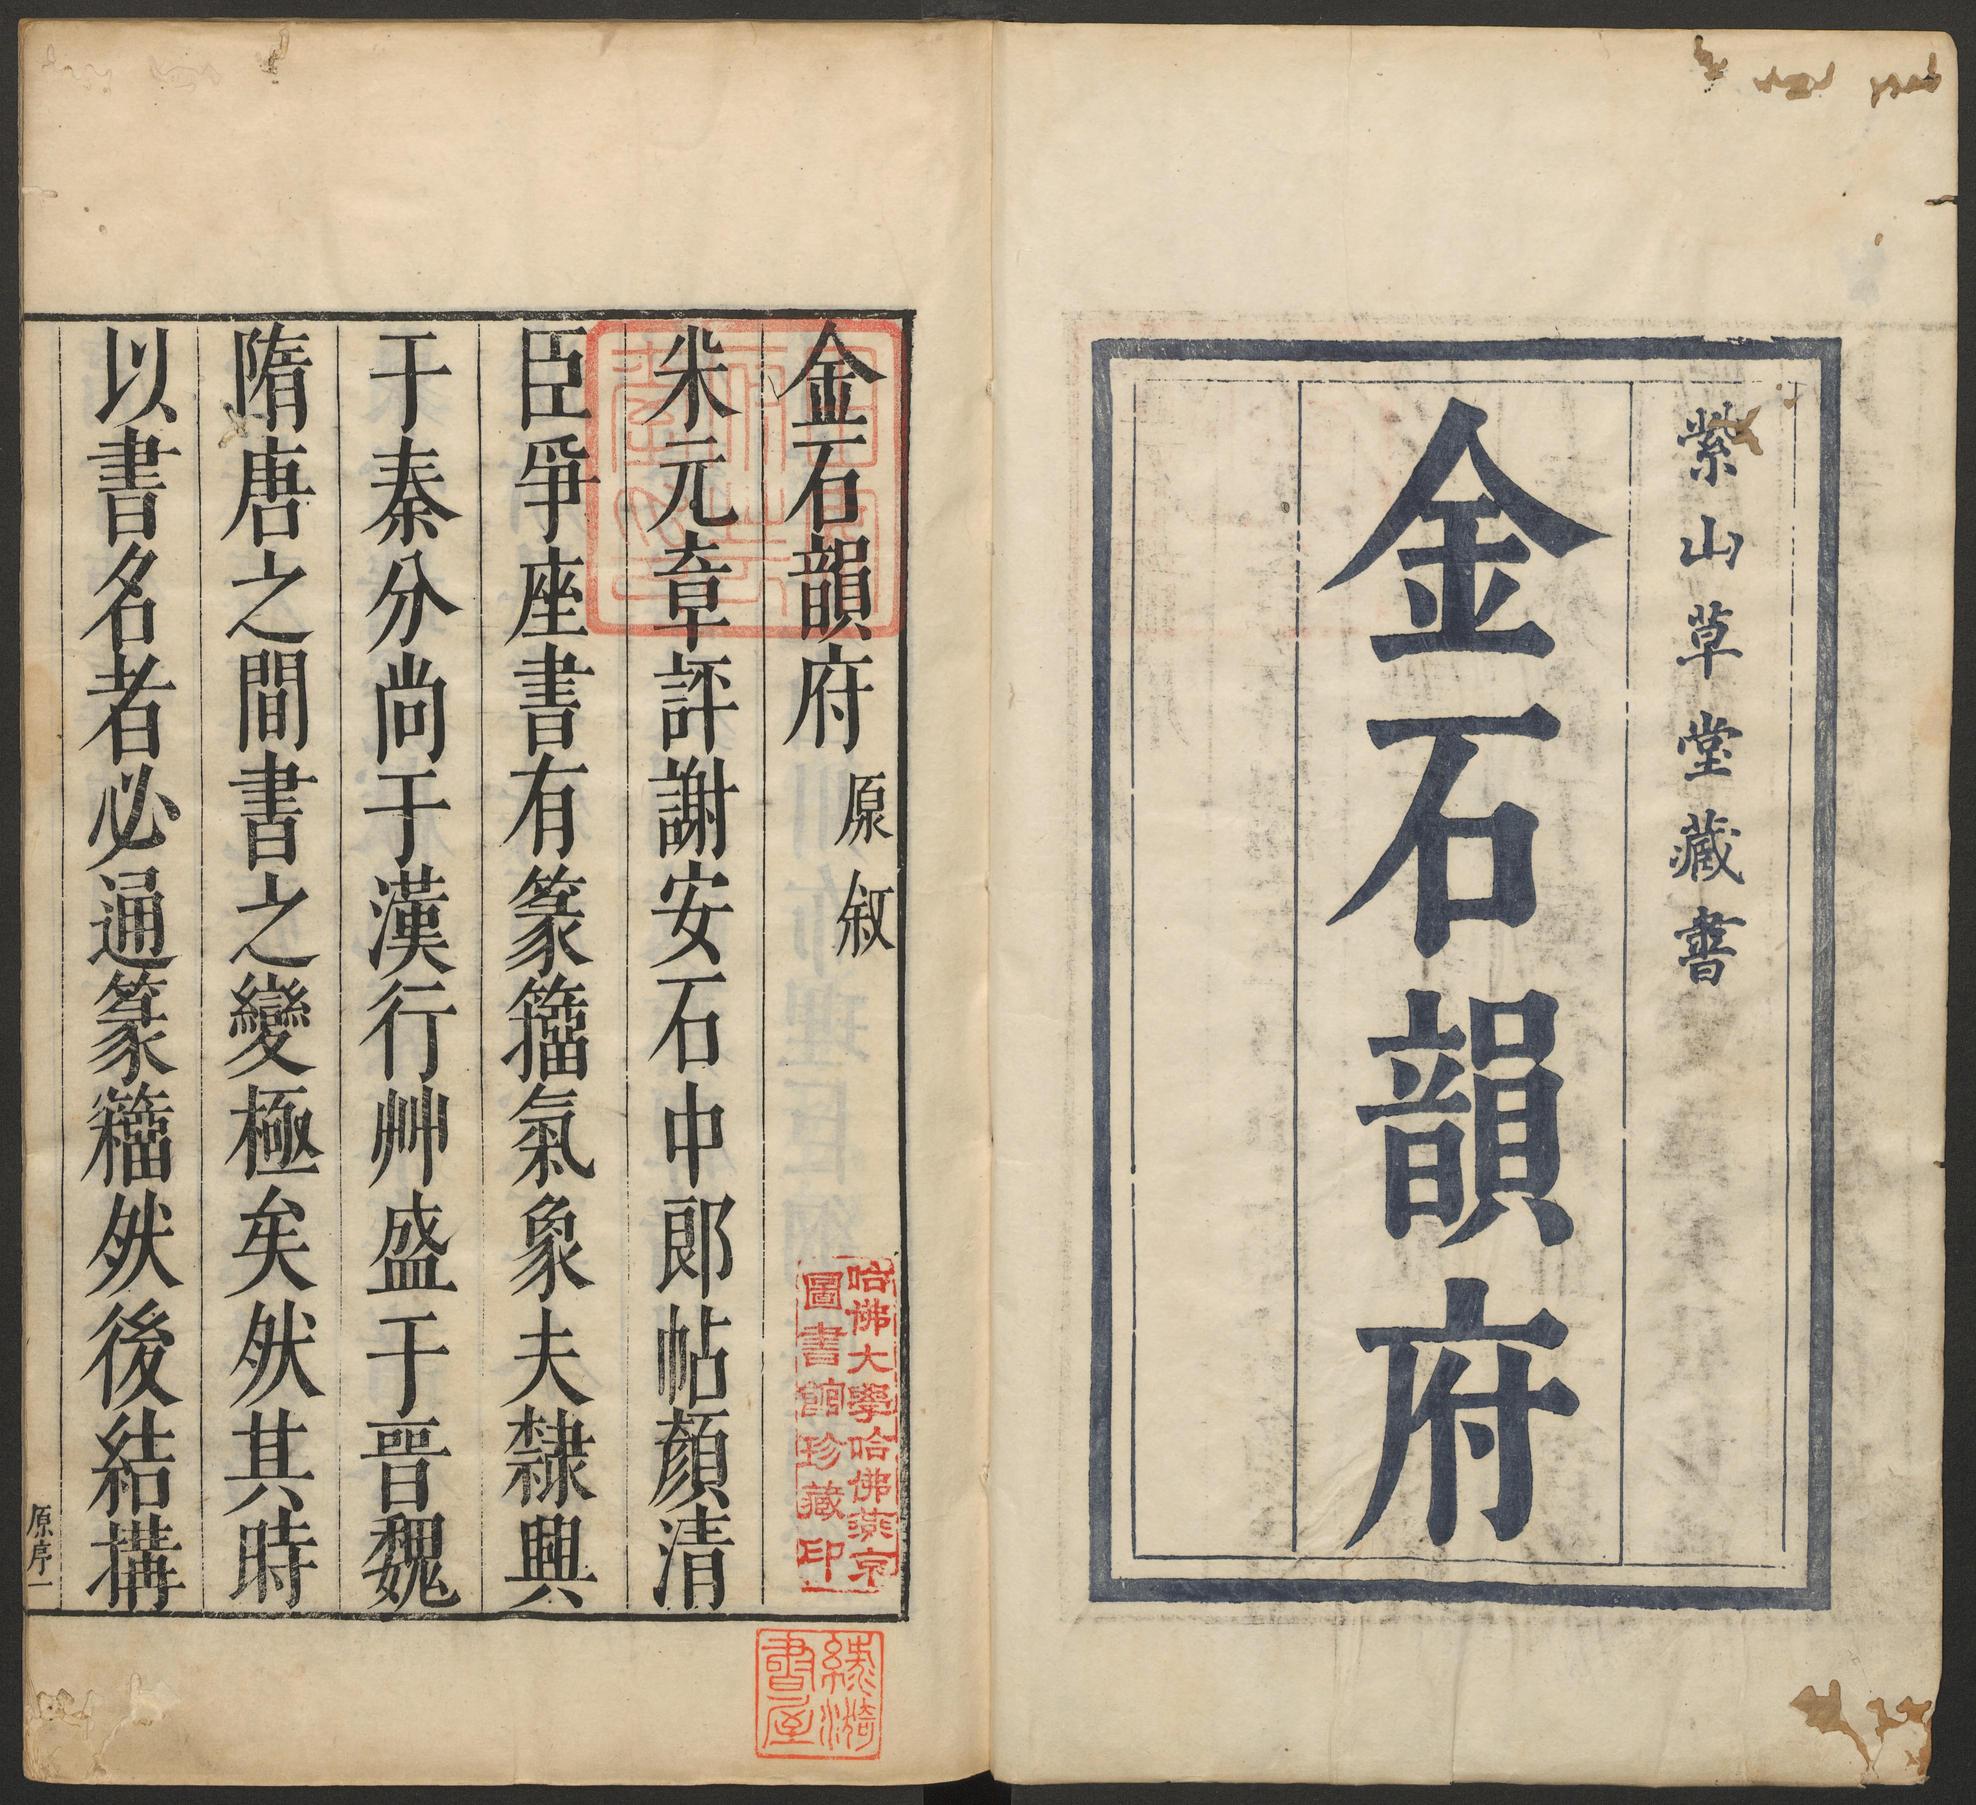 紫山草堂藏書
金石韻府
金石韻府 原叙
米元章評謝安石中郎帖顏清
臣爭座書有篆籀氣象夫隸興
于秦分尚于漢行艸盛于晉魏
隋唐之間書之變極矣然其時
以書名者必通篆籀然後結構
原序一
哈佛大學哈佛燕京
圖書館珍藏印
綠漪
書屋